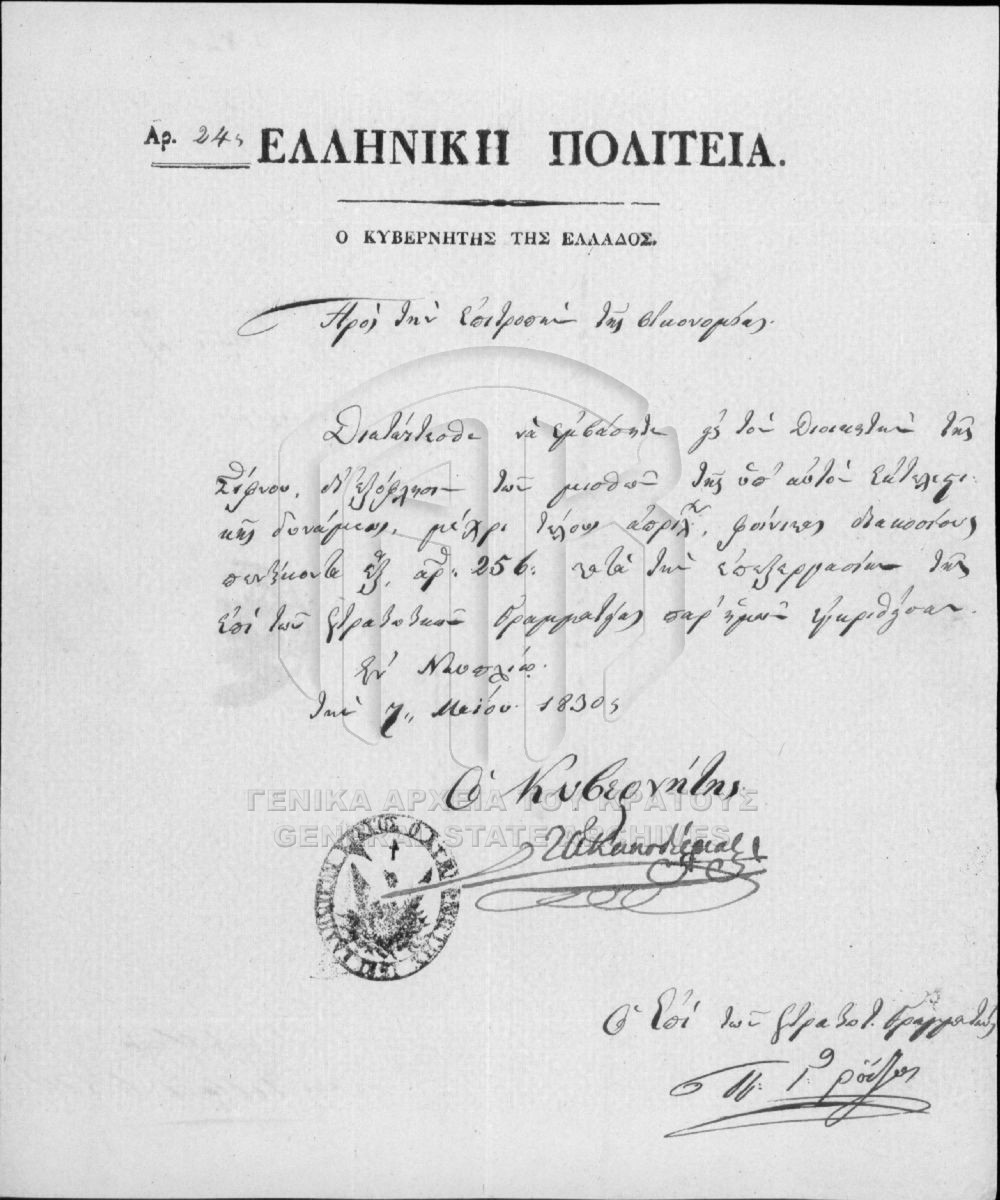 Αρ. 24
ΕΛΛΗΝΙΚΗ ΠΟΛΙΤΕΙΑ.
Ο ΚΥΒΕΡΝΗΤΗΣ ΤΗΣ ΕΛΛΑΔΟΣ.
Πρὸς τὴν Ἐπιτροπὴν τῆς Οἰκονομίας.
Διατάττεσθε νὰ ἐμβάσητε εἰς τὸν Διοικητὴν τῆς
Σίφνου, δι' ἐξόφλησιν τῶν μισθῶν τῆς ὑπ' αὐτὸν ἐκτελεστι-
κῆς δυνάμεως, μέχρι τέλους ἀπριλ., φοίνικας διακοσίους
πεντήκοντα ἓξ, ἀρ: 256: κατὰ τὴν ἐπεξεργασίαν τῆς
ἐπὶ τῶν Στρατιωτικῶν Γραμματείας παρ' ἡμῶν ἐγκριθεῖσαν.
Ἐν Ναυπλίῳ.
τὴν 7 Μαΐου 1830
Ὁ Κυβερνήτης
ΙΑ Καποδίστριας
ΓΕΝΙΚΑ ΑΡΧΕΙΑ ΤΟΥ ΚΡΑΤΟΥΣ
GENERAL STATE ARCHIVES
Ὁ Ἐπὶ τῶν Στρατιωτ. Γραμματεὺς
Π. Γ. Ρόδιος